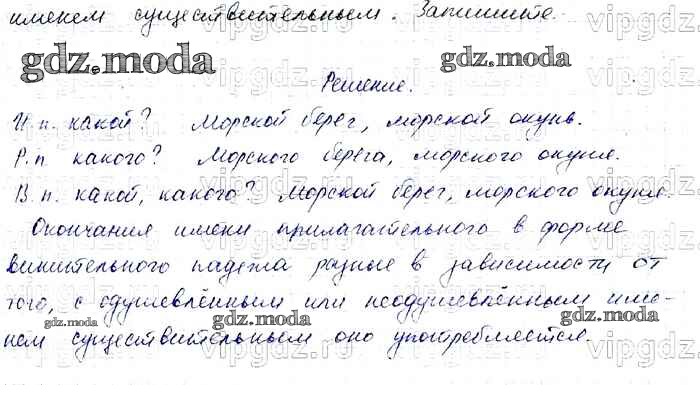 именем существительным. Запишите.
gdz.moda
Решение.
И.п. какой? Морской берег, морской окунь.
Р.п какого? Морского берега, морского окуня.
В.п. какой, какого? Морской берег, морского окуня.
Окончания имени прилагательного в форме
винительного падежа разные в зависимости от
того, с одушевлённым или неодушевлённым име-
нем существительным оно употребляется.
gdz.moda
gdz.moda
gdz.moda
vipgdz.ru